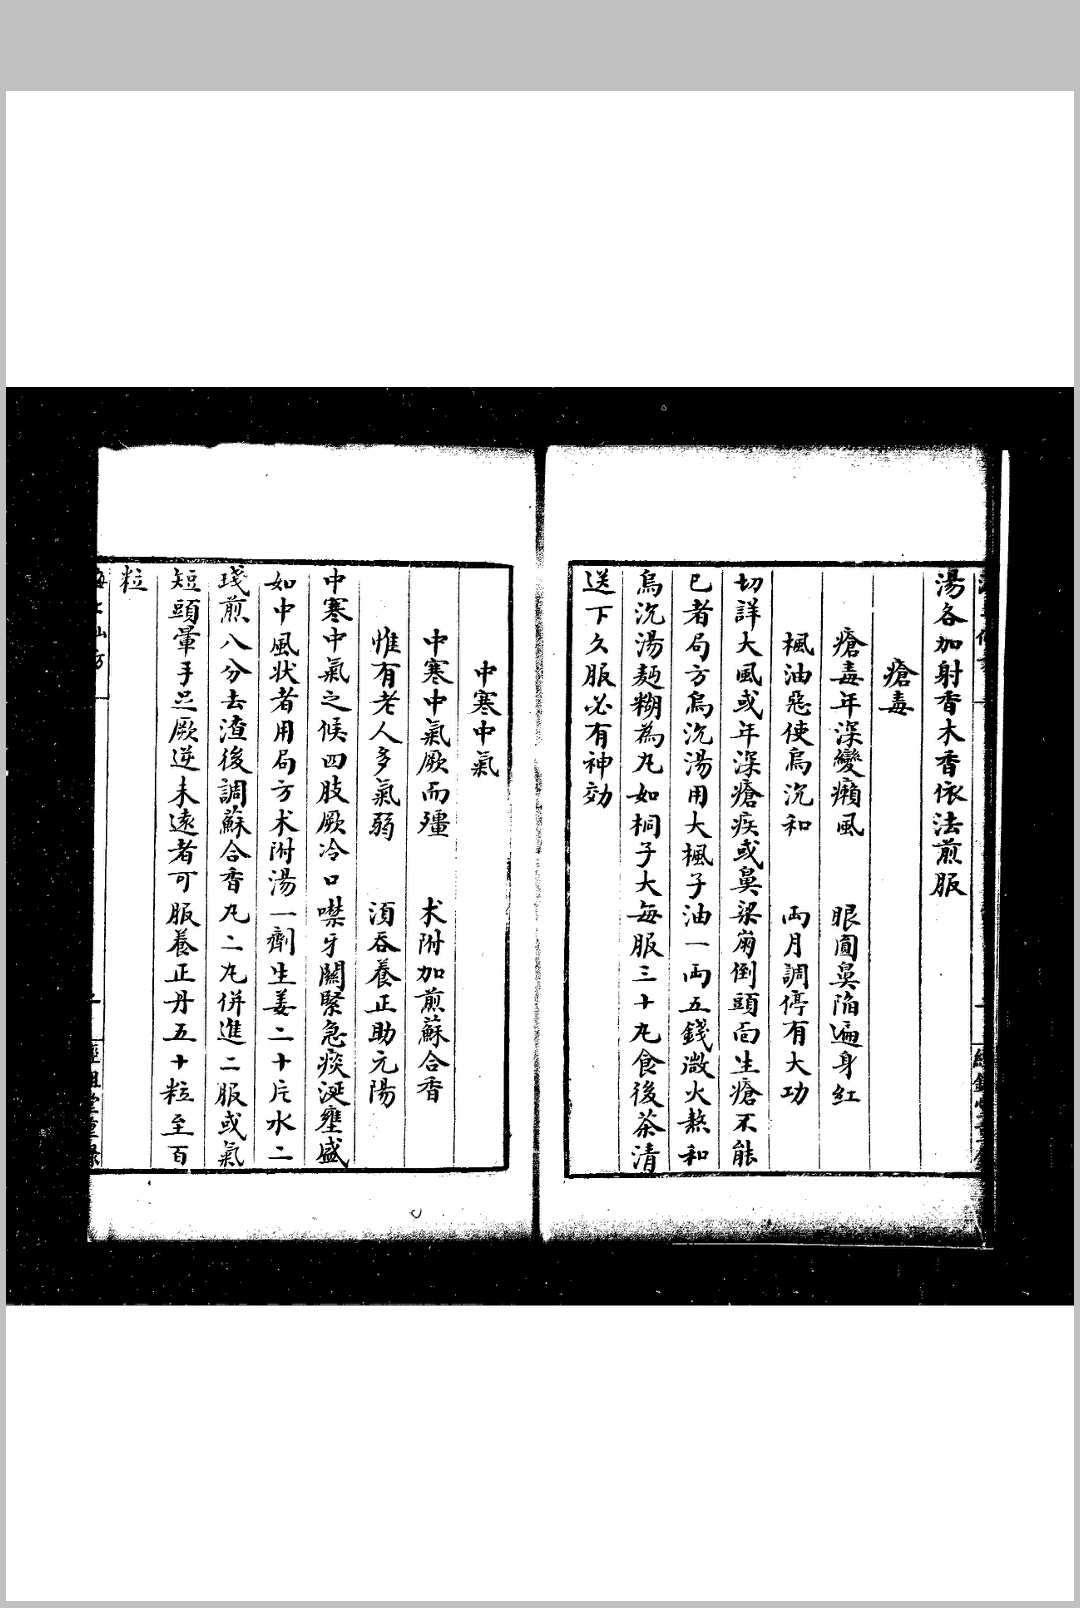 湯各加射香木香依法煎服
瘡毒
瘡毒年深變癩風　眼圓鼻陷遍身紅
楓油惡使烏沉和　両月調停有大功
切詳大風或年深瘡疾或鼻梁崩倒頭面生瘡不能
已者局方烏沉湯用大楓子油一両五錢微火熬和
烏沉湯麺糊為丸如桐子大每服三十丸食後茶清
送下久服必有神効
中寒中氣
中寒中氣厥而殭　术附加煎蘇合香
惟有老人多氣弱　湏吞養正助元陽
中寒中氣之候四肢厥冷口噤牙關緊急痰涎壅盛
如中風状者用局方术附湯一劑生姜二十片水二
琖煎八分去渣後調蘇合香丸二丸併進二服或氣
短頭暈手足厥逆未遠者可服養正丹五十粒至百
粒